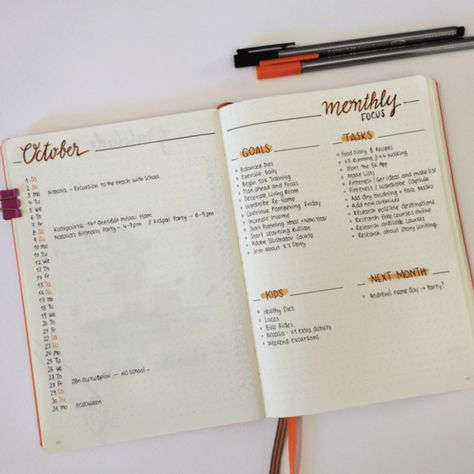 October
1 Sa
2 Su
3 Mo Natalia - Excursion to the beach with school
4 Tu
5 We
6 Th
7 Fr
8 Sa 11am
9 Su Natalia's Birthday Party - 4-7pm // Kidpal Party - 6-9pm
10 Mo
11 Tu
12 We
13 Th
14 Fr
15 Sa
16 Su
17 Mo
18 Tu
19 We
20 Th
21 Fr
22 Sa
23 Su
24 Mo
25 Tu
26 We
27 Th
28 Fr 28η Οκτωβρίου — NO SCHOOL -
29 Sa
30 Su
31 Mo Halloween
Monthly
FOCUS
GOALS
• Balanced Diet
• Exercise Daily
• Begin 10K Training
• Plan ahead and Focus
• Decorate Living Room
• Wardrobe Re-Vamp
• Continue Pampering Friday
• Increase Income
• Start Planning 2017 New Year
• Start Learning
• Adobe Illustrator Course
• Story
TASKS
• Food Diary & Recipes
• x3 Running // x4 Walking
• Start the 5K App
• Make Lists
• Pinterest / Get ideas and make list
• Pinterest / Wardrobe Capsule
• Add dry brushing + face masks
• Add new avenues
• Research possible destinations
• Research free courses online
• Research available courses
• Research about story writing
KIDS
• Healthy Diet
• Laces
• Bike Rides
• Natalia: x1 extra activity
• Weekend Excursions
NEXT MONTH
• nameday → Party?